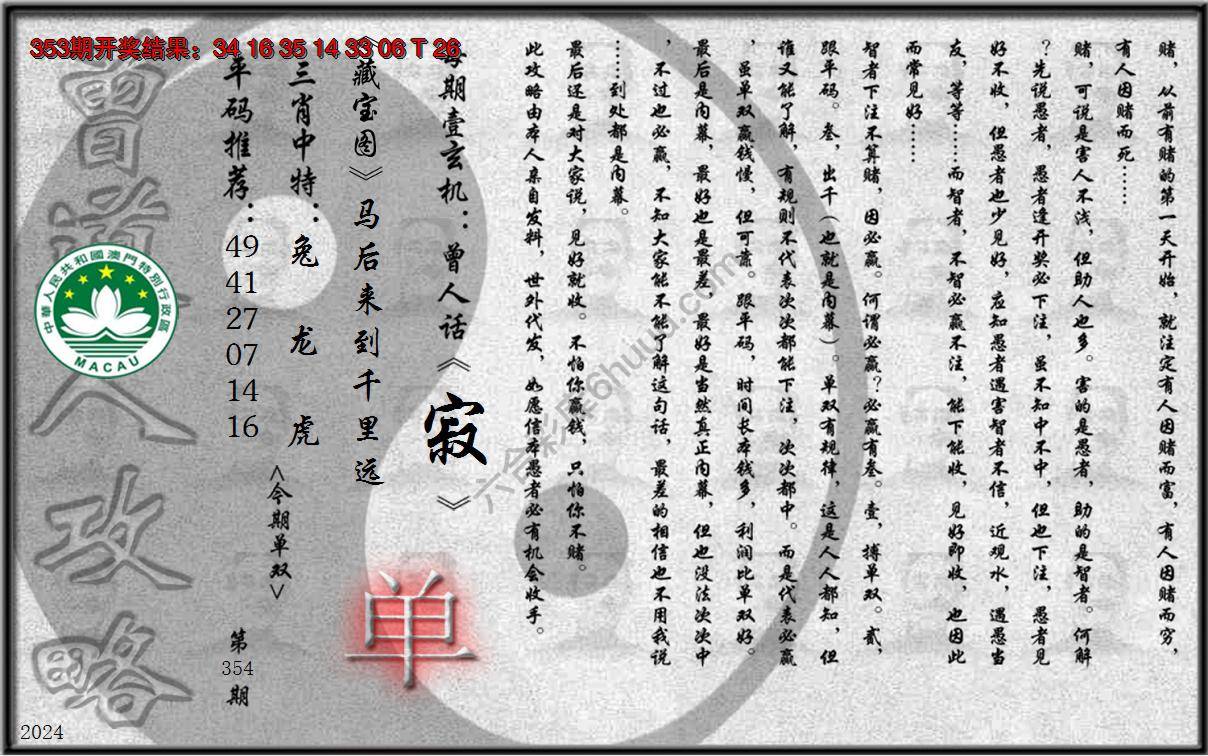 353期开奖结果：34 16 35 14 33 06 T 26
赌，从前有赌的第一天开始，就注定有人因赌而富，有人因赌而穷，
有人因赌而死……
赌，可说是害人不浅，但助人也多。害的是愚者，助的是智者。何解
？先说愚者，愚者逢开奖必下注，虽不知中不中，但也下注，愚者见
好不收，但愚者也少见好，应知愚者遇害智者不信，近观水，遇愚当
友，等等……而智者，不智必赢不注，能下能收，见好即收，也因此
而常见好……
智者下注不算赌，因必赢。何谓必赢？必赢有叁。壹，搏单双。贰，
跟平码。叁，出千（也就是内幕）。单双有规律，这是人人都知，但
谁又能了解，有规则不代表次次都能下注，次次都中。而是代表必赢
，虽单双赢钱慢，但可靠。跟平码，时间长本钱多，利润比单双好。
最后是内幕，最好也是最差，最好是当然真正内幕，但也没法次次中
，不过也必赢，不知大家能不能了解这句话，最差的相信也不用我说
……到处都是内幕。
最后还是对大家说，见好就收。不怕你赢钱，只怕你不赌。
此攻略由本人亲自发料，世外代发，如愿信本愚者必有机会收手。
每期壹玄机：曾人话《寂》
《藏宝图》马后来到千里远
单
三肖中特：兔 龙 虎
<今期单双>
平码推荐：49 41 27 07 14 16
第354期
曾道人攻略
中華人民共和國澳門特別行政區
MACAU
六合彩库6huuu.com
2024